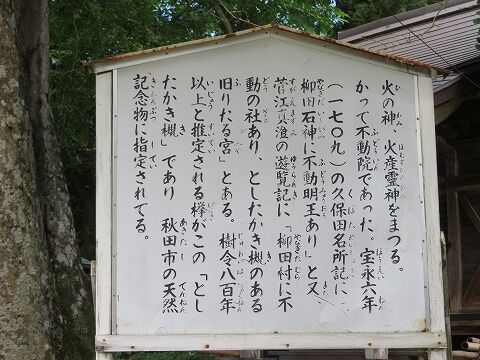 火の神 火産霊神をまつる。か
かって不動院であった。宝永六年
(一七〇九)の久保田名所記に、
柳田石神に不動明王あり」と又、
菅江真澄の遊覧記に「柳田村に不
動の社あり、としたかき槻のある
旧りたる宮」とある。樹令八百年
以上と推定される欅がこの「とし
たかき槻」であり 秋田市の天然
記念物に指定されてる。